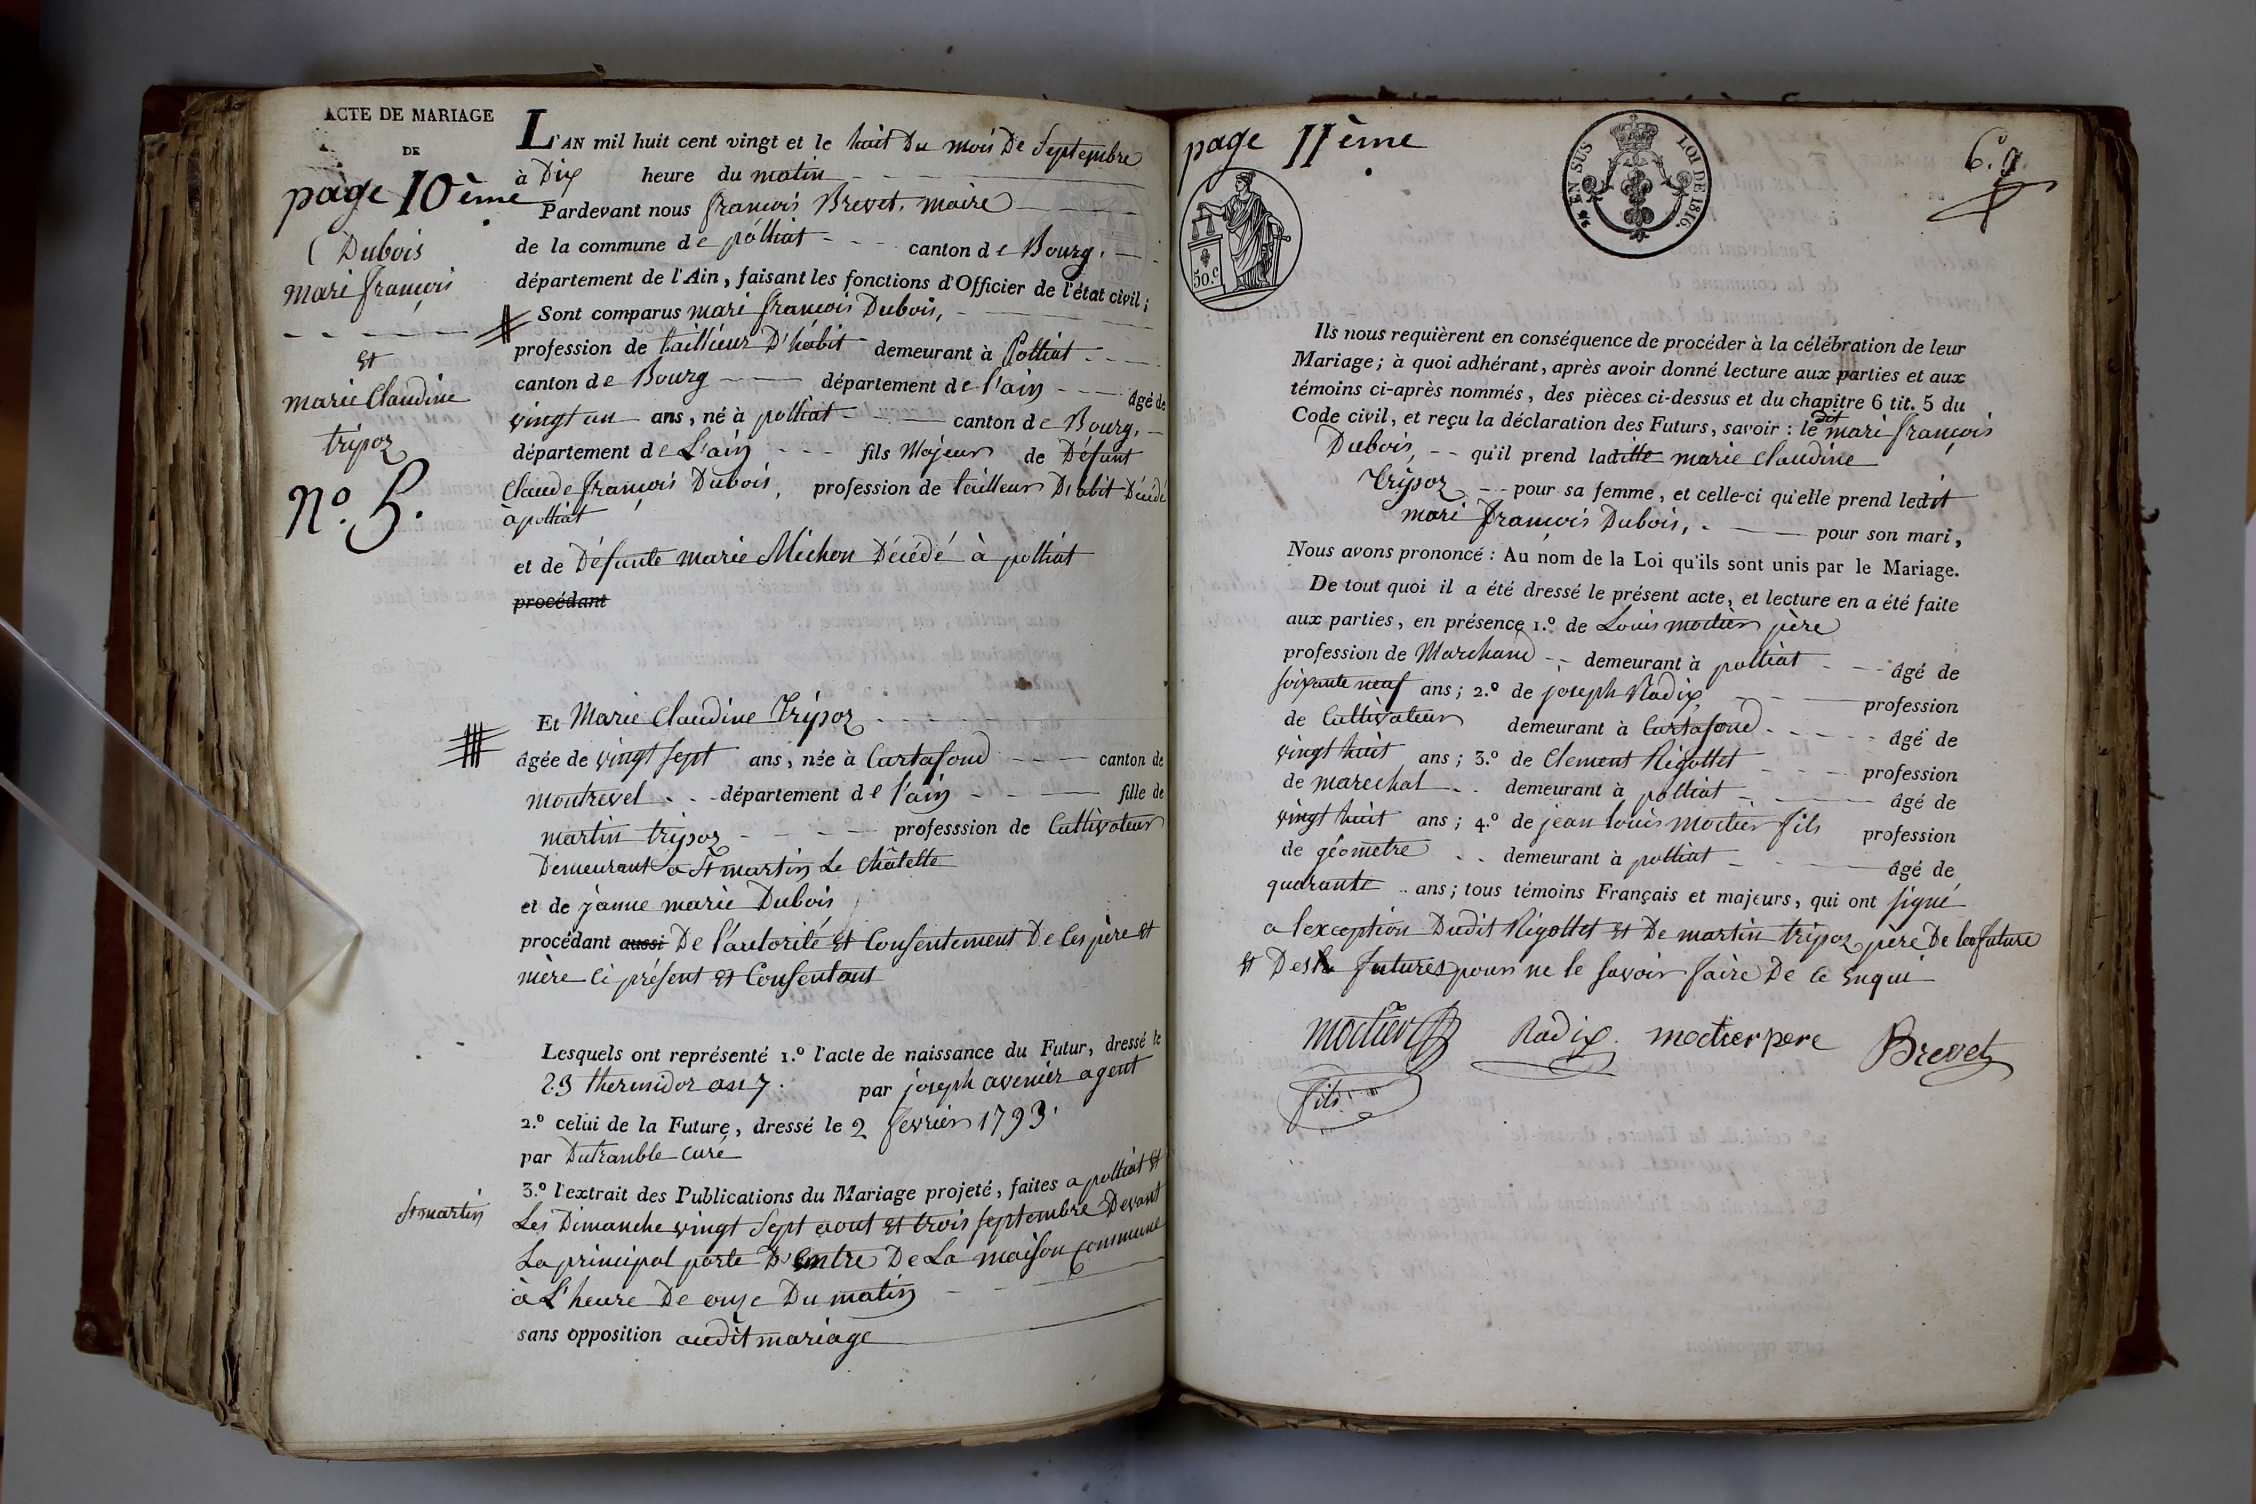 ACTE DE MARIAGE
DE
page 10ème
Dubois
mari françois
Et
marie Claudine
tripoz
No. 5.
L'AN mil huit cent vingt et le huit Du mois De Septembre
à Dix heure du matin
Pardevant nous françois Brevet, maire
de la commune de polliat canton de Bourg,
département de l'Ain, faisant les fonctions d'Officier de l'état civil;
Sont comparus mari françois Dubois,
profession de taillieur D'habit demeurant à Polliat
canton de Bourg département de l'ain âgé de
vingt un ans, né à polliat canton de Bourg,
département de L'ain fils Majeur de Défunt
Claude françois Dubois, profession de tailleur D'abit Décédé
à polliat
et de Défunte marie Michon Décédé à polliat
procédant
Et Marie Claudine Tripoz
âgée de vingt sept ans, née à Cartafond canton de
montrevel département de l'ain fille de
martin tripoz professsion de Cultivateur
Demeurant a St martin Le Châtelle
et de janne marie Dubois
procédant aussi De l'autorité et Consentement De Ces père et
mère Ci présent et Consentant
Lesquels ont représenté 1.º l'acte de naissance du Futur, dressé le
23 thermidor an 7. par joseph avenier agent
2.º celui de la Future, dressé le 2 fevrier 1793.
par Dutramble curé
3.º l'extrait des Publications du Mariage projeté, faites a polliat et
St martin Les Dimanche vingt Sept aout et trois septembre Devant
La principal porte D'entre De La maison commune
à L'heure De onze Du matin
sans opposition audit mariage
page 11ème
EN SUS LOI DE 1816.
50.c
6.e
Ils nous requièrent en conséquence de procéder à la célébration de leur
Mariage; à quoi adhérant, après avoir donné lecture aux parties et aux
témoins ci-après nommés, des pièces ci-dessus et du chapitre 6 tit. 5 du
Code civil, et reçu la déclaration des Futurs, savoir: le dit mari françois
Dubois, qu'il prend laditte marie Claudine
Tripoz pour sa femme, et celle-ci qu'elle prend ledit
mari françois Dubois, pour son mari,
Nous avons prononcé: Au nom de la Loi qu'ils sont unis par le Mariage.
De tout quoi il a été dressé le présent acte, et lecture en a été faite
aux parties, en présence 1.º de Louis moctier père
profession de Marchand demeurant à polliat âgé de
soixante neuf ans; 2.º de joseph Radix profession
de Cultivateur demeurant à Cartafond âgé de
vingt huit ans; 3.º de Clement Rigottet profession
de marechal demeurant à polliat âgé de
vingt huit ans; 4.º de jean louis moctier fils profession
de géometre demeurant à polliat âgé de
quarante ans; tous témoins Français et majeurs, qui ont signé
a lexception Dudit Rigottet et De martin tripoz père De la future
et Des futures pour ne le savoir faire De ce enqui
moctier Radix. moctier pere Brevet
fils